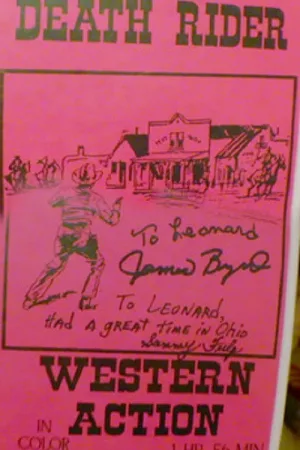 DEATH RIDER
To Leonard
James Byrd
TO LEONARD,
HAD A GREAT TIME IN Ohio
Sammy
WESTERN
IN ACTION
COLOR 1 HR. 56 MIN